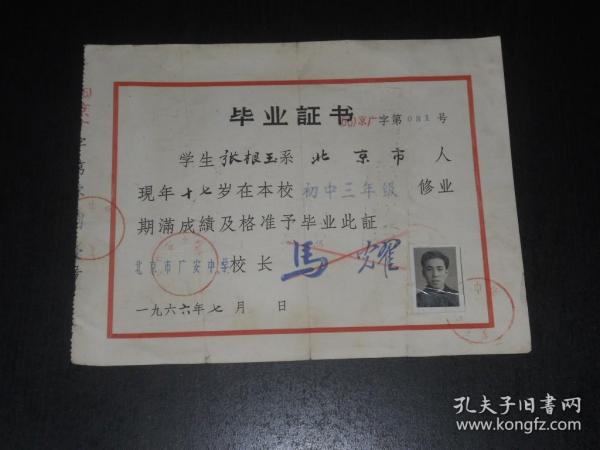 毕业証书
京广字第081号
学生张根玉系北京市人
現年十七岁在本校初中三年級修业
期滿成績及格准予毕业此証
北京市广安中学校长馬耀
一九六六年七月 日
孔夫子旧书网
www.kongfz.com